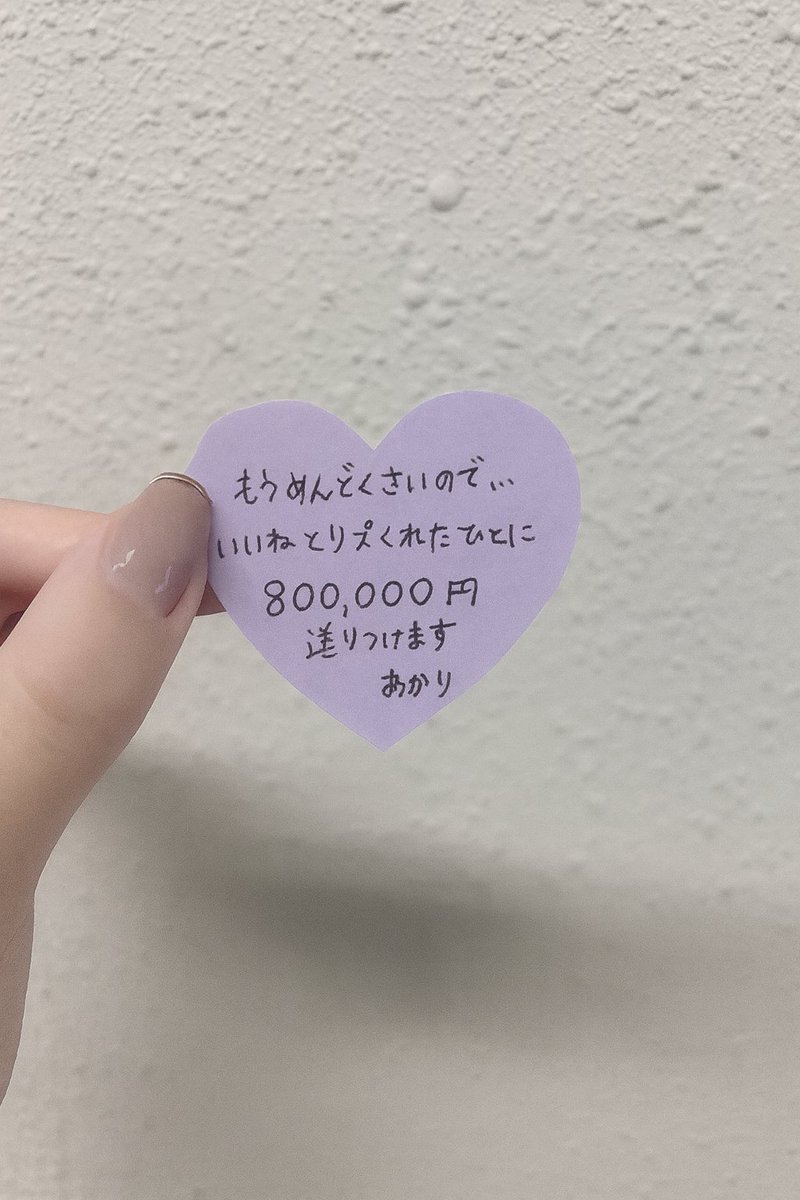 もうめんどくさいので…
いいねとリプくれたひとに
800,000円
送りつけます
あかり